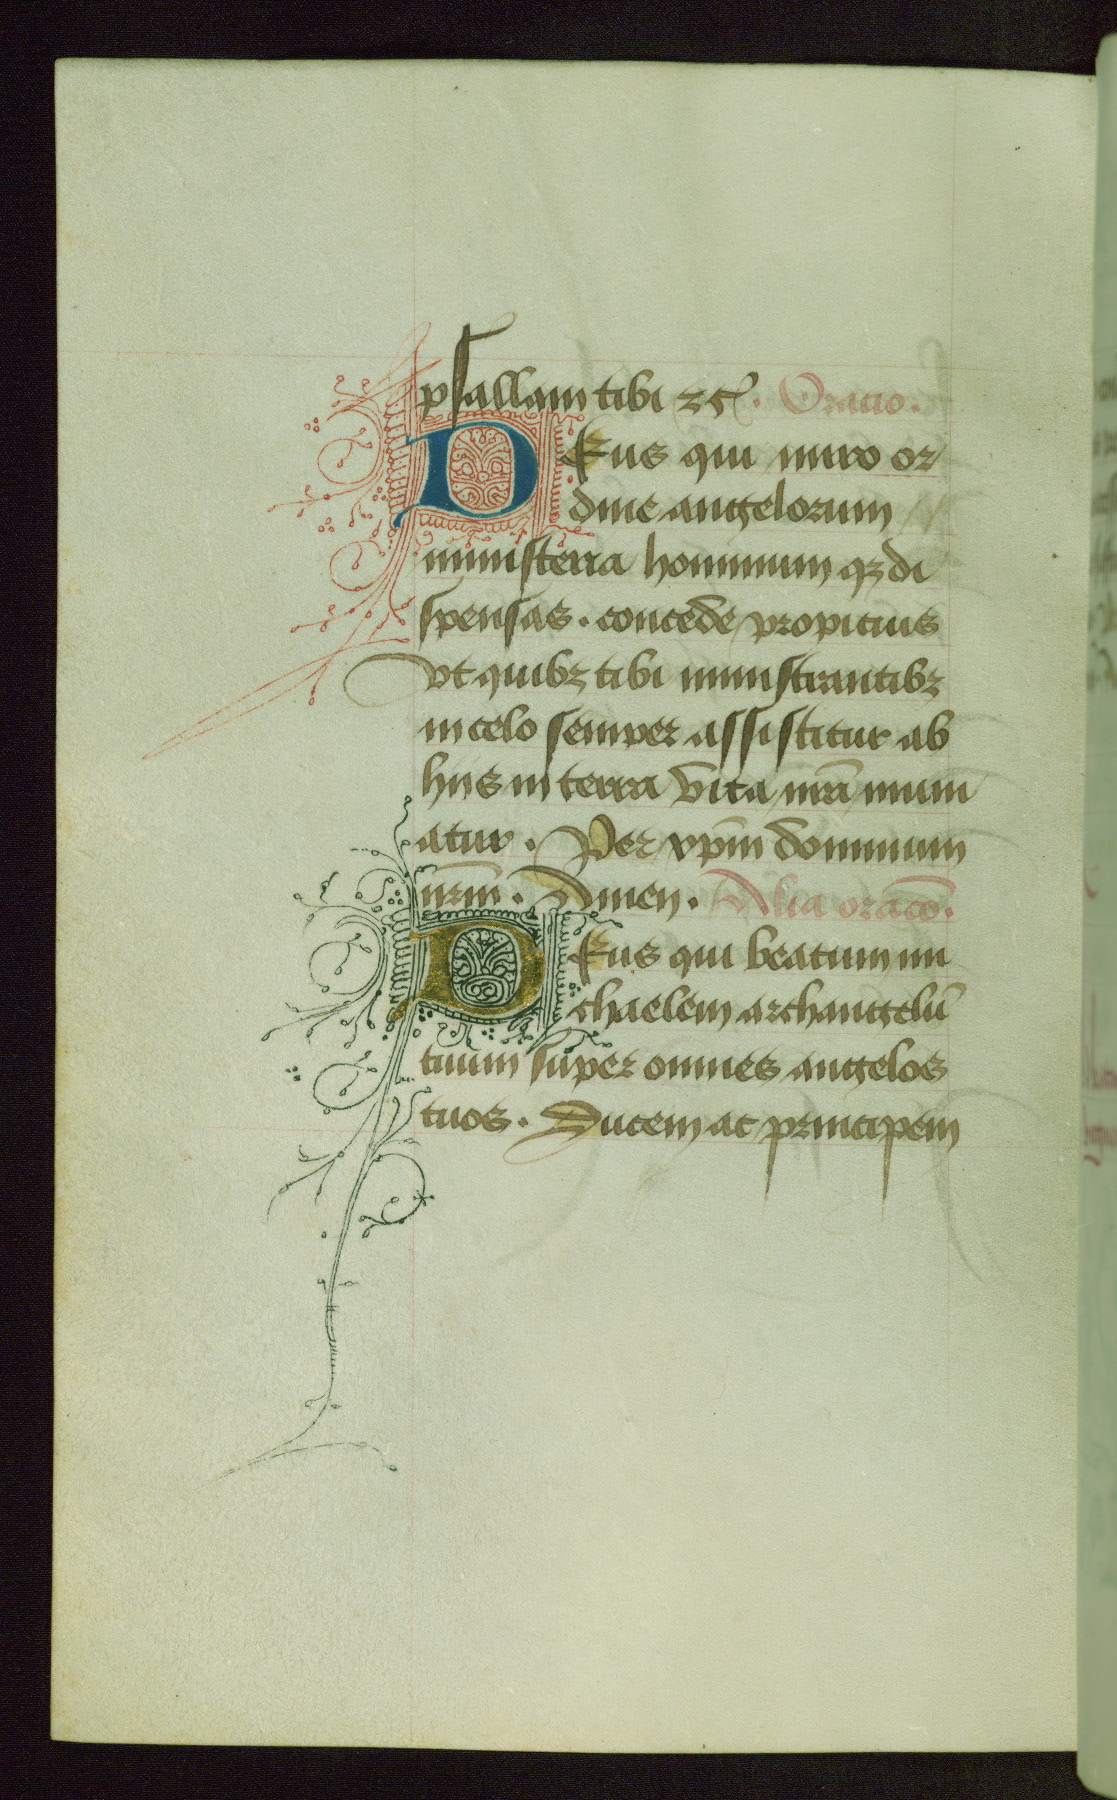 psallam tibi ⁊c̃. Oracio.
DEus qui miro or
dine angelorum
ministeria hominum qꝫ di
spensas. concede propicius
vt quibꝫ tibi ministrantibꝫ
in celo semper assistitur ab
hiis in terra vita nr̄a muni
atur. Per xpm̄ dominum
nrm̄. Amen. Alia orac̄o.
DEus qui beatum mi
chaelem archangelū
tuum super omnes angelos
tuos. Ducem ac principem